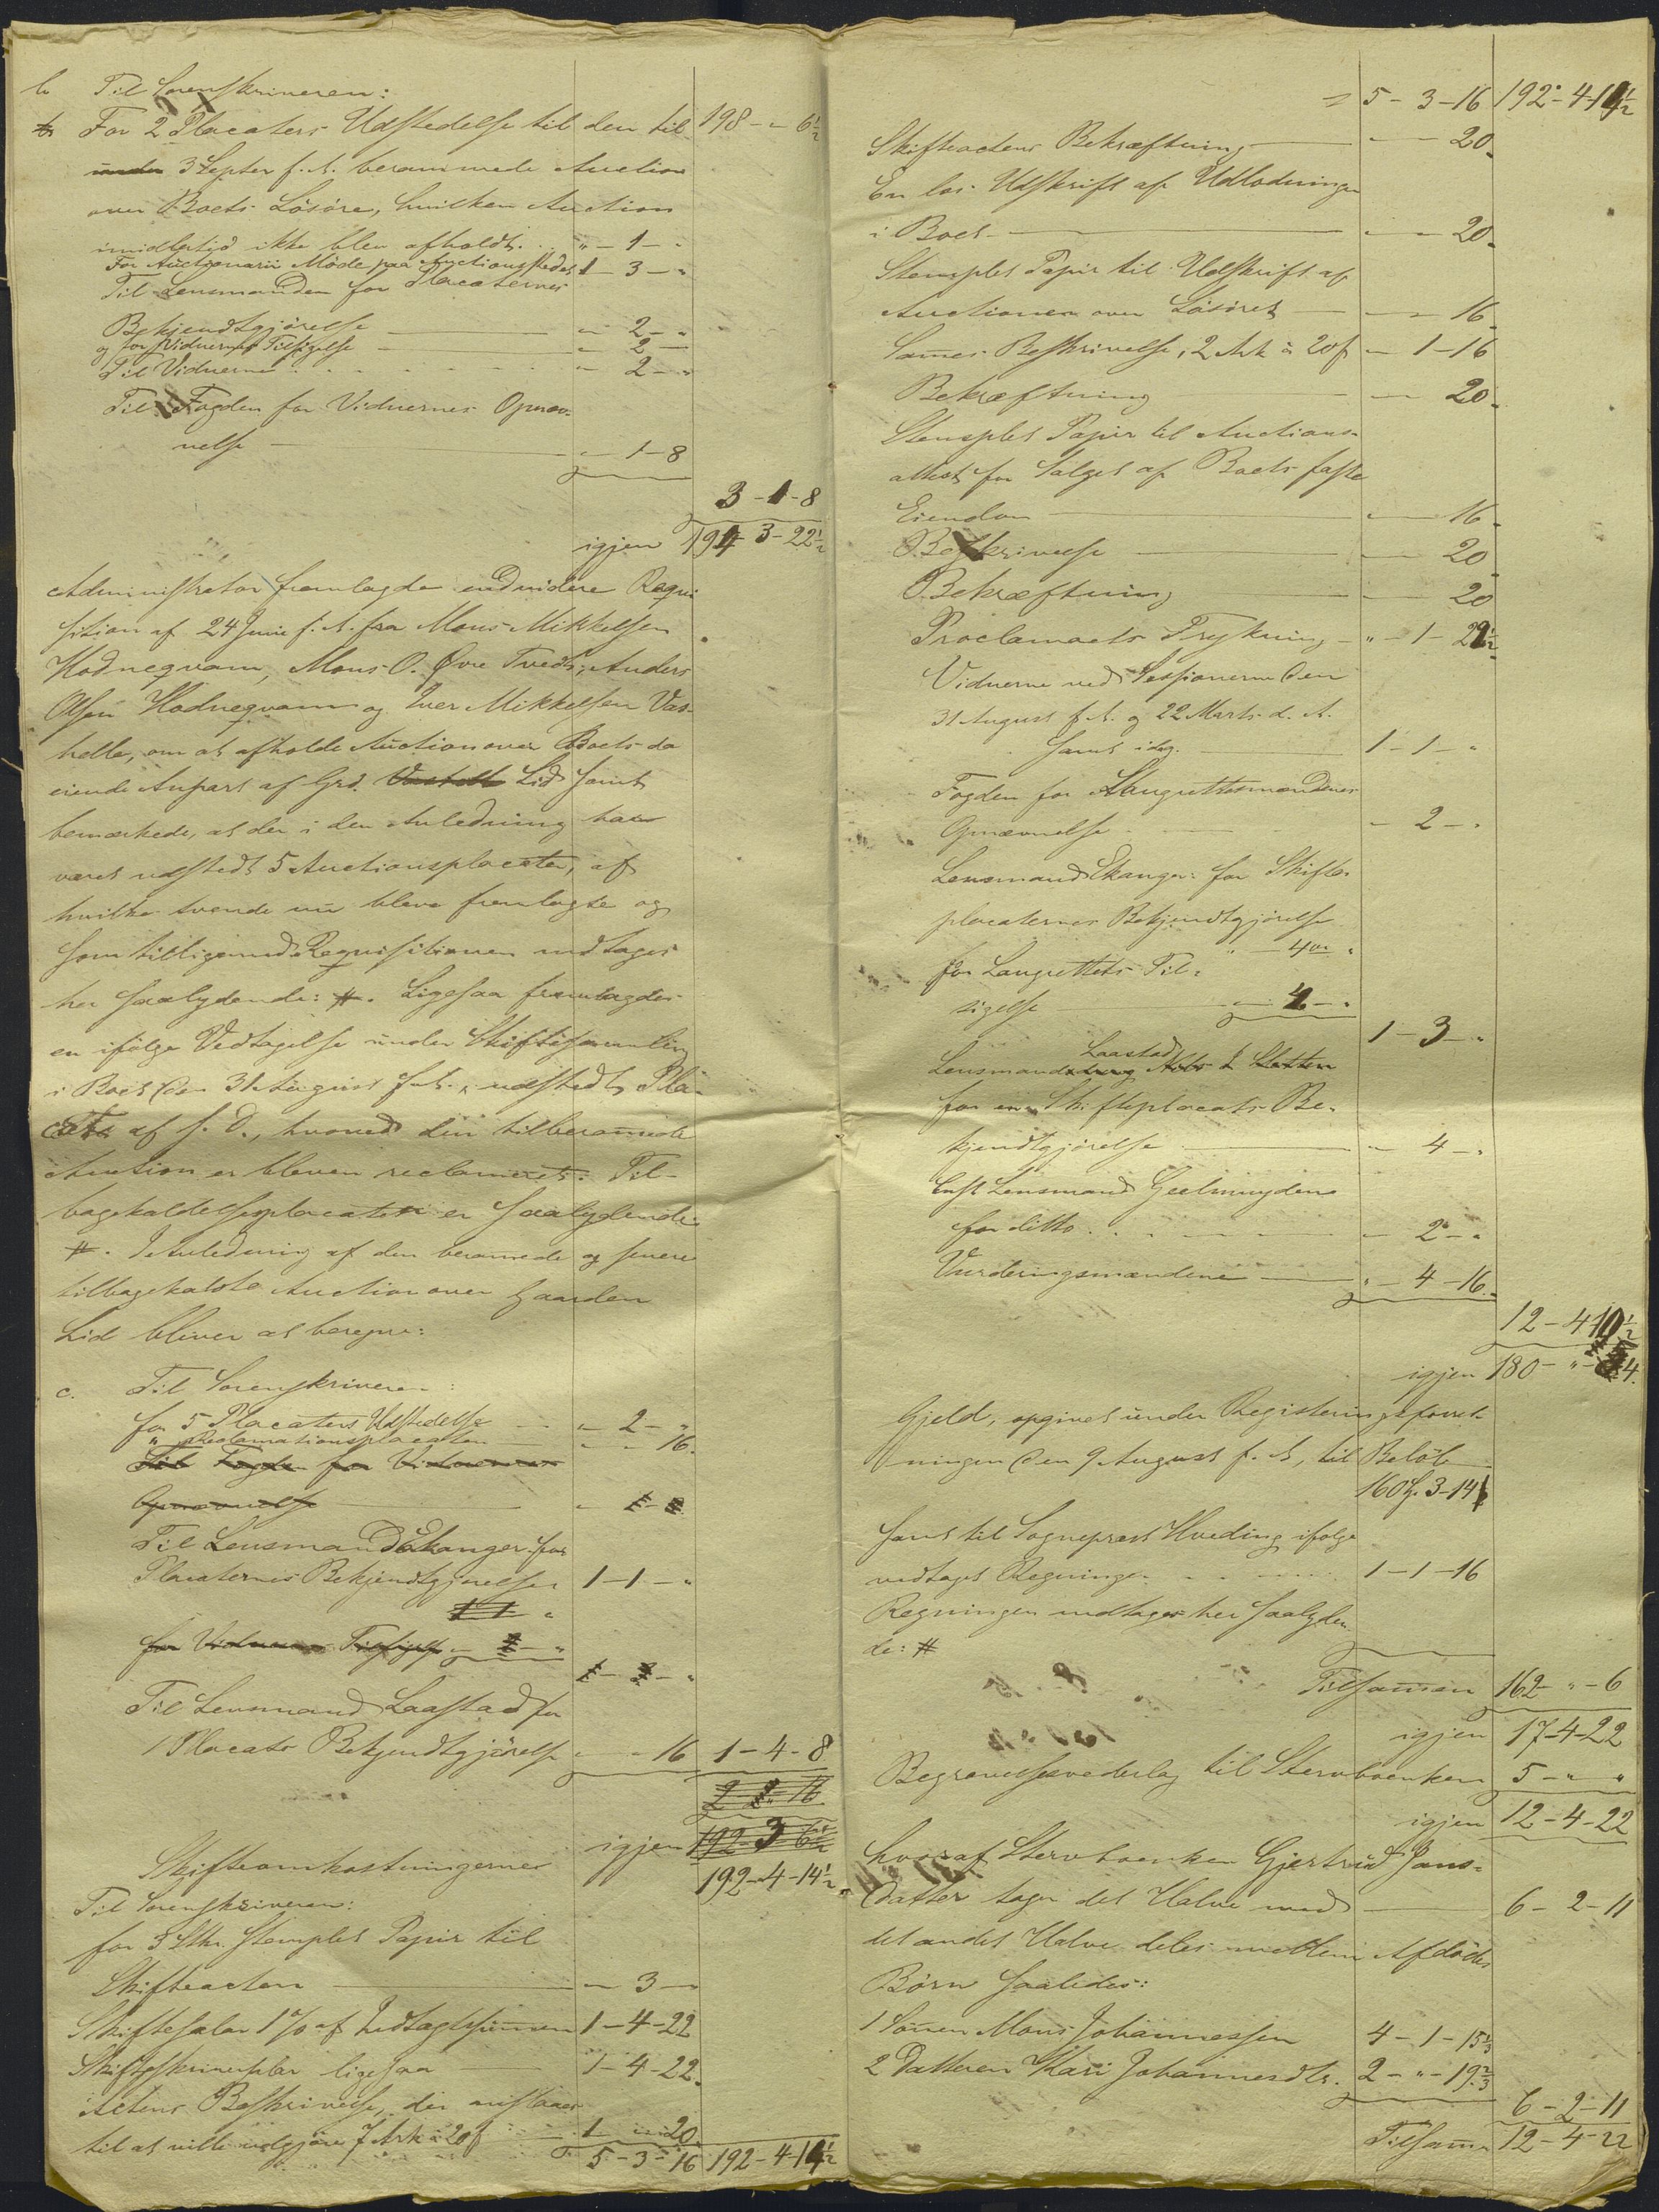 b. Til Sorenskriveren:
For 2 Placaters Udstedelse til den til 198 - " - 6½
3 Septer f. A. berammede Auction
over Boets Løsöre, hvilken Auction
imidlertid ikke blev afholdt. . . " - 1 - "
For Auctionarii Möde paa Auctionsstedet 1 - 3 - "
Til Lensmanden for Placaternes
Bekjendtgjörelse " - 2 - "
og for Vidnernes Tilsigelse " - 2 -
Til Vidnerne . . . . " - 2 - "
Til Fogden for Vidnernes Opnæv-
nelse " - 1 - 8
3 - 1 - 8
igjen 194 - 3 - 22½
Administrator fremlagde endvidere Requi-
sition af 24 Juni f. A. fra Mons Mikkelsen
Hodneqvam, Mons O. Øvre Tvedt, Anders
Olsen Hodneqvam og Iver Mikkelsen Vas-
helle, om at afholde Auction over Boets da
eiende Anpart af Grd. Lid samt
bemærkede, at der i den Anledning har
været udstedt 5 Auctionsplacater, af
hvilke tvende nu bleve fremlagte og
som tilligemed Requisitionen indtages
her saalydende: #. Ligesaa fremlagdes
en ifölge Vedtagelse under Skiftesamling
i Boet den 31 August f. A. udstedt Pla-
cat af s. D., hvorved den tilberammede
Auction er bleven reclameret. Til-
bagekaldelsesplacaten er saalydende:
#. I Anledning af den berammede og senere
tilbagekaldte Auction over Gaarden
Lid bliver at beregne:
c. Til Sorenskriveren:
for 5 Placaters Udstedelse " - 2 - "
" Reclamationsplacaten " - " - 16.
Til Fogden for Vidnernes
Opnævnelse
Til Lensmand Ekanger for
Placaternes Bekjendtgjörelse 1 - 1 - "
1 1 "
for Vidnernes Tilsigelse
Til Lensmand Laastad for
1 Placats Bekjendtgjörelse " - " - 16 1 - 4 - 8
2 - 2 - 16
igjen 192 - 3 - 6½
Skifteomkostningerne 192 - 4 - 14½
Til Sorenskriveren:
for 3 Stkr. stemplet Papir til
Skifteacten " - 3 - "
Skiftesalær 1 % af Indtægtssummen 1 - 4 - 22
Skifteskriversalær ligesaa 1 - 4 - 22.
Actens Beskrivelse, der anslaaes
til at ville udgjöre 7 Ark à 20 ß 1 - " - 20
5 - 3 - 16 192 - 4 - 14½
5 - 3 - 16 192 - 4 - 14½
Skifteactens Bekræftning " - " - 20.
En løs Udskrift af Udlodningen
i Boet " - " - 20.
Stemplet Papir til Udskrift af
Auctionen over Løsöret " - " - 16.
Sammes Beskrivelse, 2 Ark à 20 ß " - 1 - 16
Bekræftning " - " - 20.
Stemplet Papir til Auctions-
attest for Salget af Boets faste
Eiendom " - " - 16.
Beskrivelse " - " - 20
Bekræftning " - " - 20
Proclamaets Trykning " - 1 - 22½
Vidnerne ved Sessionerne den
31 August f. A. og 22 Marts d. A.
samt idag. 1 - 1 - "
Fogden for Laugrettesmændenes
Opnævnelse " - 2 - "
Lensmand Ekanger: for Skifte-
placaternes Bekjendtgjörelse
" - 4 - "
for Laugrettets Til-
sigelse " - 4 - "
1 - 3 - "
Lensmand Laastad
for en Skifteplacats Be-
kjendtgjörelse " - 4 - "
Lensmand Geelmuyden
for ditto . . . " - 2 - "
Vurderingsmændene " - 4 - 16.
12 - 4 - 10½
igjen 180 - " - 4.
Gjeld, opgivet under Registeringsforret-
ningen den 9 August f. A., til Belöb
160 Sp. 3 - 14
samt til Sognepræst Hveding ifølge
vedtaget Regning . . . 1 - 1 - 16
Regningen indtages her saalyden-
de: #
Tilsammen 162 - " - 6
igjen 17 - 4 - 22
Begravelsesvederlag til Stervboenken 5 - " - "
igjen 12 - 4 - 22
hvoraf Stervboenken Gjertrud Jans-
datter tager det Halve med 6 - 2 - 11
det andet Halve deles mellem Afdödes
Börn saaledes:
1 Sönnen Mons Johannessen 4 - 1 - 15⅓
2 Datteren Kari Johannesdtr. 2 - " - 19⅔
6 - 2 - 11
Tilsamn 12 - 4 - 22